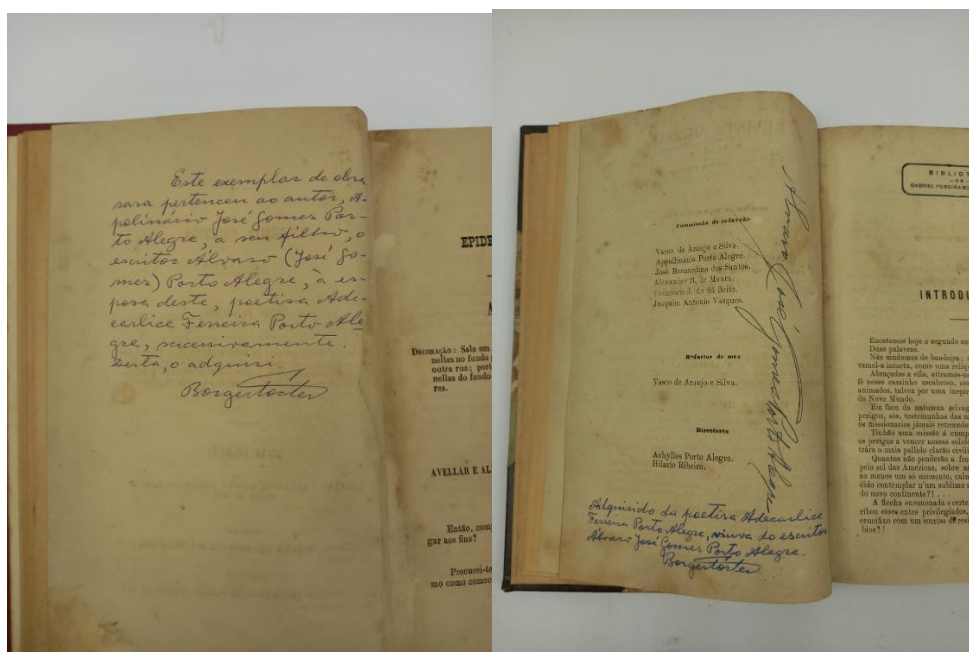 Este exemplar de obra
rara pertenceu ao autor, A-
polinário José Gomes Por-
to Alegre, a seu filho, o
escritor Alvaro (José Go-
mes) Porto Alegre, à es-
posa deste, poetisa Ade-
carlice Ferreira Porto Ale-
gre, sucessivamente.
Desta, o adquiri.
Borges Fortes
EPIDE
DECORAÇÃO: Sala em
nellas no fundo
outra rua; port
nellas do fundo
res.
AVELLAR E AL
Então, com
gar aos fins?
Procurei-te
mo como comec
Commissão de redacção
Vasco de Araujo e Silva.
Appellinario Porto Alegre.
José Bernardino dos Santos.
Alexandre B. de Moura.
Francisco I. de Sá Brito.
Joaquim Antonio Vasques.
Redactor de mez
Vasco de Araujo e Silva.
Directores
Achylles Porto Alegre.
Hilario Ribeiro.
Alvaro José Gomes Porto Alegre
Adquirido da poetisa Adecarlice
Ferreira Porto Alegre, viuva do escritor
Álvaro José Gomes Porto Alegre.
Borges Fortes
BIBLIOT
DE
GABRIEL PEREIRA BO
INTRODU
Encetamos hoje o segundo an
Duas palavras.
Não mudamos de bandeira;
vamol-a intacta, como uma reliq
Abraçados a ella, atiramos-n
fé nesse caminho escabroso, co
animados, talvez por uma inspi
do Novo Mundo.
Em face da natureza selvag
perigos, sós, testemunhas das
os missionarios jámais retroced
Tinhão uma missão á cump
os perigos a vencer nessas solid
trára o mais pallido clarão civili
Quantos não penderão a fra
pelo sol das Americas, sobre a
ao menos um só momento, culm
dião contemplar n'um sublime
do novo continente?! . . .
A flecha envenenada e certe
ribou esses entes privilegiados,
crucifixo com um sorriso de res
bios?!